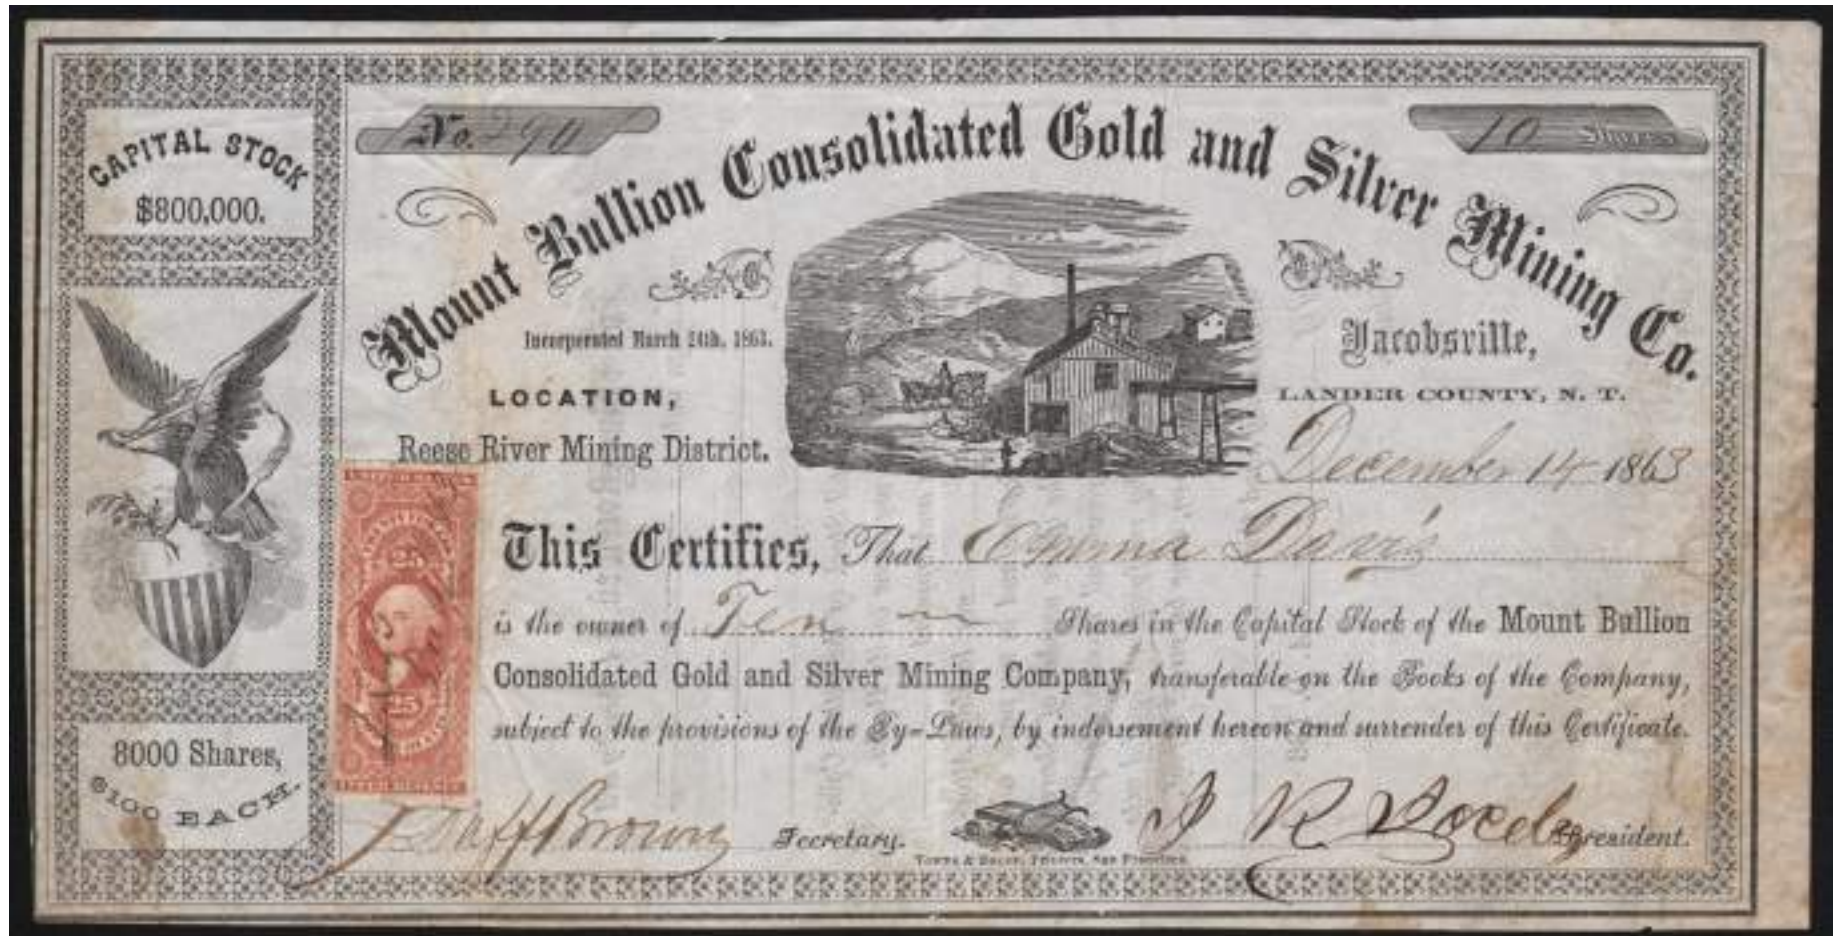 CAPITAL STOCK
$800,000.
No. 290
10 Shares
Mount Bullion Consolidated Gold and Silver Mining Co.
Incorporated March 24th, 1863.
LOCATION,
Reese River Mining District.
Jacobsville,
LANDER COUNTY, N. T.
December 14 1863
This Certifies, That Emma Davis
is the owner of Ten Shares in the Capital Stock of the Mount Bullion
Consolidated Gold and Silver Mining Company, transferable on the Books of the Company,
subject to the provisions of the By-Laws, by indorsement hereon and surrender of this Certificate.
25
25
8000 Shares,
$100 EACH.
Brown Secretary.
President.
San Francisco